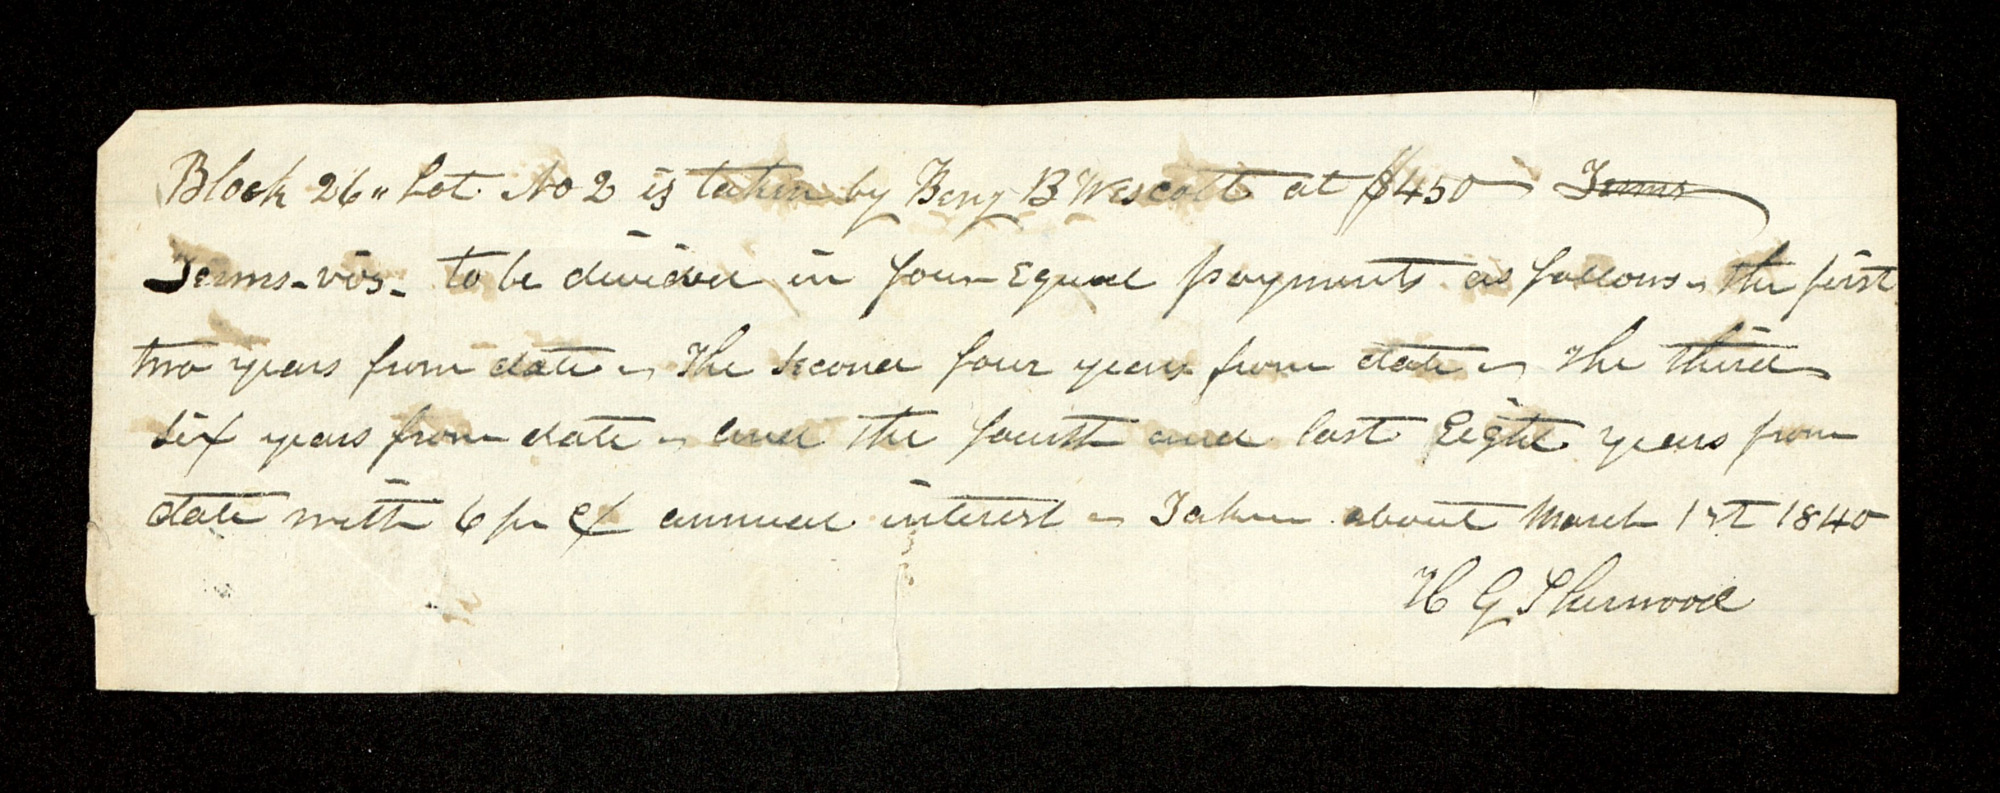 Block 26 " Lot No 2 is taken by Benj B Wescott at $450 - Terms
Terms - vis - to be divided in four Equal payments as follows - the first
two years from date - The second four years from date - The third
six years from date - and the fourth and last Eight years from
date with 6 pr ct annual interest - Taken about March 1st 1840
H G Sherwood